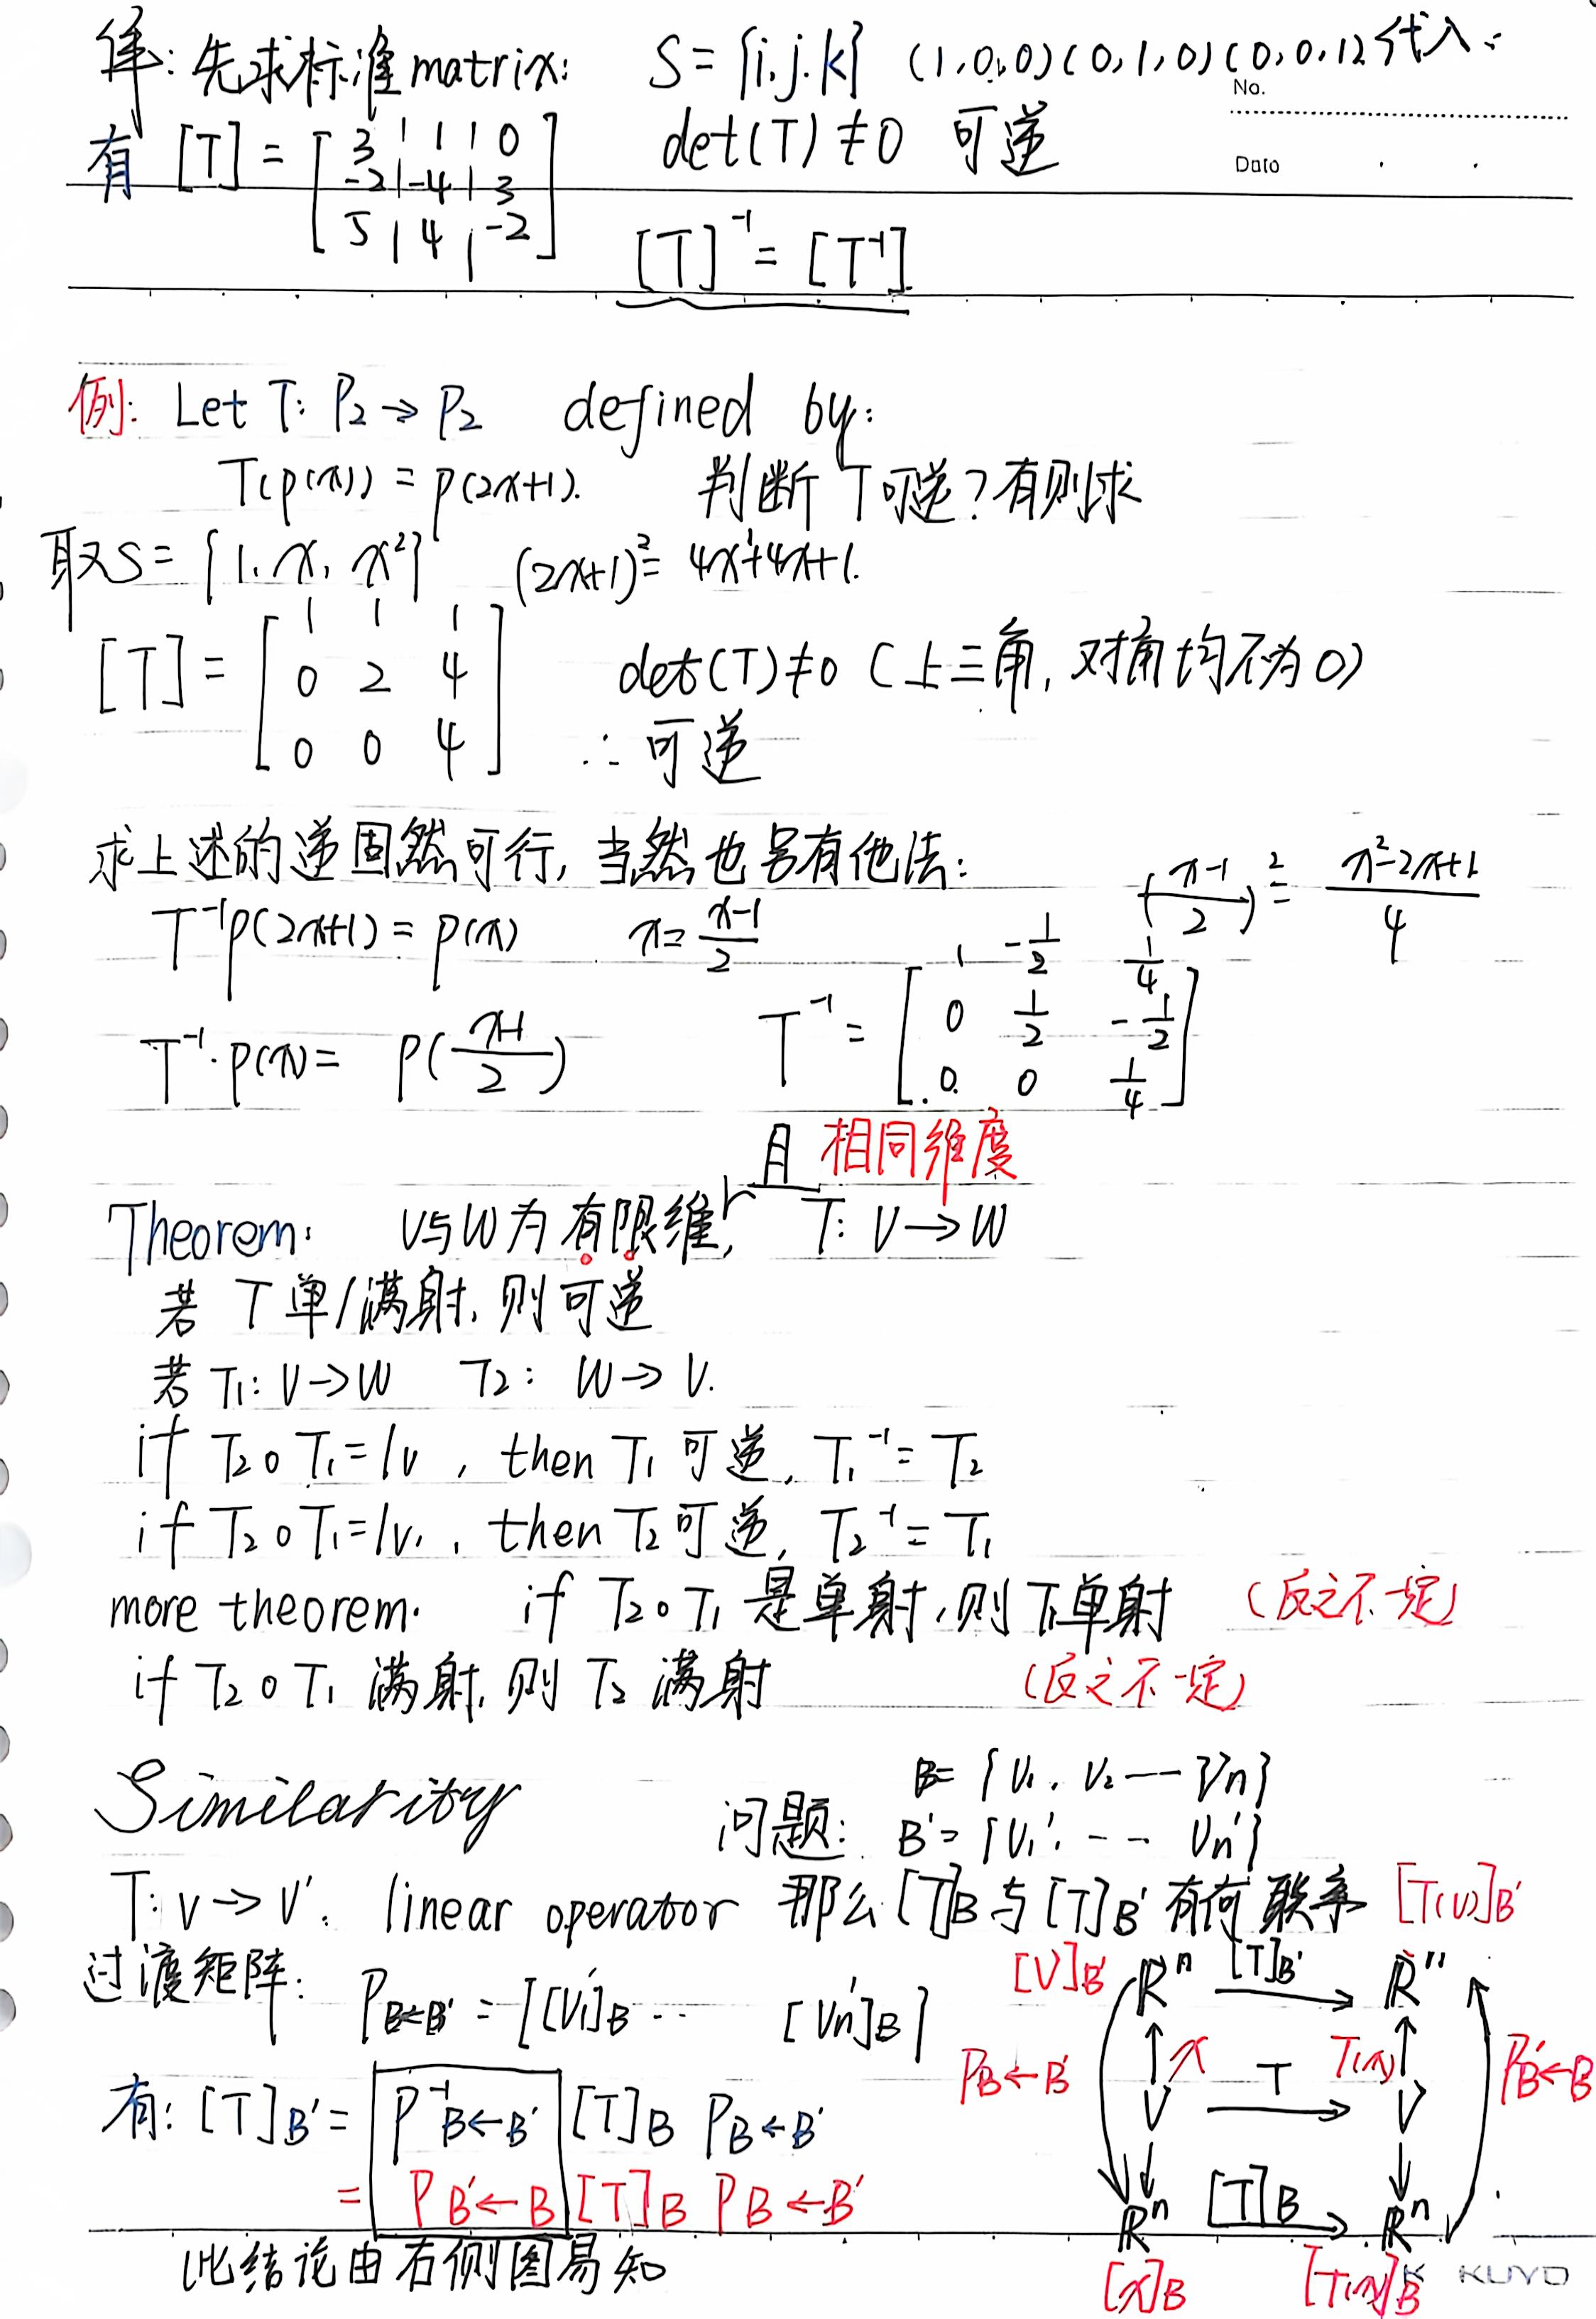 解: 先求标准 matrix: S = {i, j, k} (1,0,0)(0,1,0)(0,0,1) 代入:
No.
有 [T] = [3 | 1 | 0 det(T) ≠ 0 可逆
Date
-2 | -4 | 3
5 | 4 | -2]
[T]⁻¹ = [T⁻¹]
例: Let T: P₂ → P₂ defined by:
T(p(x)) = p(2x+1). 判断 T 可逆? 有则求
取 S = {1, x, x²} (2x+1)² = 4x²+4x+1.
[T] = [1 1 1
0 2 4 det(T) ≠ 0 (上三角, 对角均不为 0)
0 0 4] ∴ 可逆
求上述的逆固然可行, 当然也另有他法:
T⁻¹p(2x+1) = p(x) x = (x-1)/2 ((x-1)/2)² = (x²-2x+1)/4
T⁻¹·p(x) = p((x-1)/2) T⁻¹ = [1 -1/2 1/4
0 1/2 -1/2
0 0 1/4]
且 相同维度
Theorem: V与W为有限维, T: V → W
若 T 单/满射, 则可逆
若 T₁: V → W T₂: W → V.
if T₂∘T₁ = Iv, then T₁ 可逆, T₁⁻¹ = T₂
if T₂∘T₁ = Iv, then T₂ 可逆, T₂⁻¹ = T₁
more theorem. if T₂∘T₁ 是单射, 则 T₁ 单射 (反之不一定)
if T₂∘T₁ 满射, 则 T₂ 满射 (反之不一定)
Similarity
问题: B = {V₁, V₂ --- Vn}
B' = {V₁', -- Vn'}
T: V → V'. linear operator 那么 [T]B 与 [T]B' 有何联系
过渡矩阵: P B←B' = [[V₁']B ... [Vn']B]
有: [T]B' = P⁻¹B←B' [T]B P B←B'
= P B'←B [T]B P B←B'
此结论由右侧图易知
[V]B' [T(V)]B'
Rⁿ [T]B' → Rⁿ
P B←B' x T(x) P B'←B
V T → V
Rⁿ [T]B → Rⁿ
[x]B [T(x)]B
KUYD